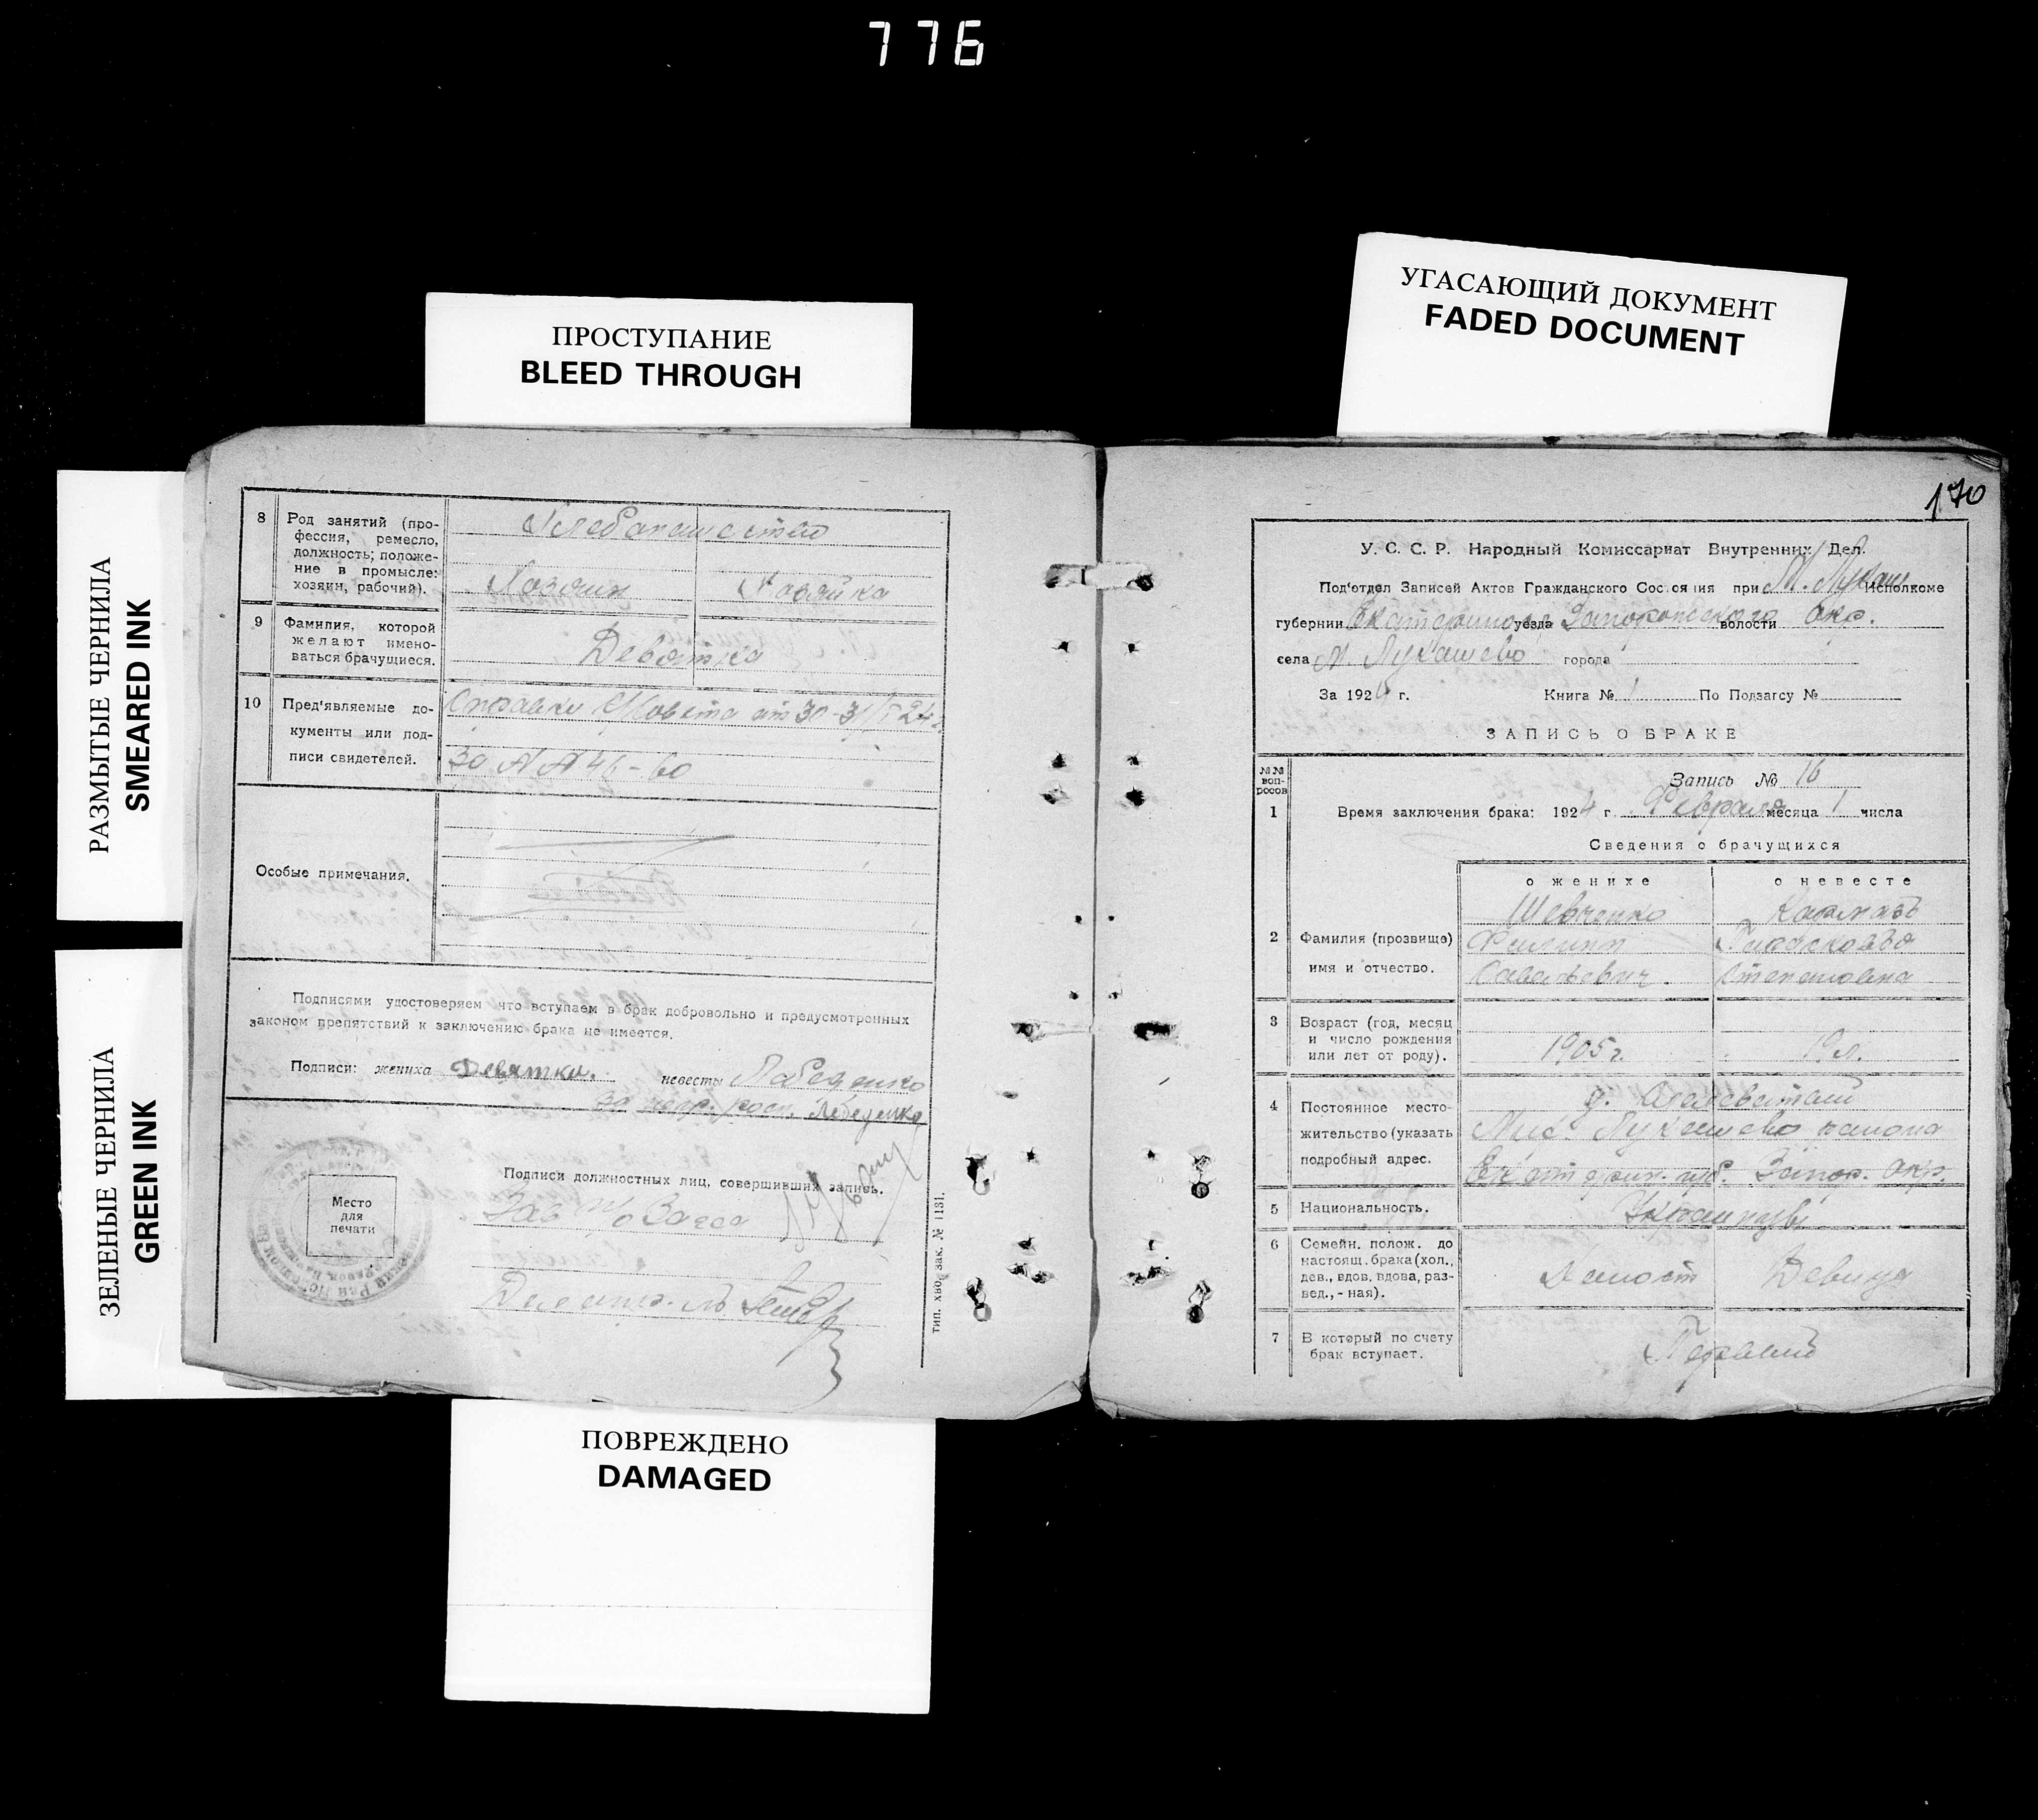 776
ПРОСТУПАНИЕ
BLEED THROUGH
УГАСАЮЩИЙ ДОКУМЕНТ
FADED DOCUMENT
РАЗМЫТЫЕ ЧЕРНИЛА
SMEARED INK
ЗЕЛЕНЫЕ ЧЕРНИЛА
GREEN INK
8 Род занятий (про-
фессия, ремесло,
должность; положе-
ние в промысле:
хозяин, рабочий).
Хлебопашество
Хозяин Хозяйка
9 Фамилия, которой
желают имено-
ваться брачущиеся.
Девятка
10 Пред'являемые до-
кументы или под-
писи свидетелей.
Справки С/Совета от 30-31/I 24 г.
За №№ 46-60
Особые примечания.
Подписями удостоверяем что вступаем в брак добровольно и предусмотренных
законом препятствий к заключению брака не имеется.
Подписи: жениха Девятка. невесты Лебеденко
за негр. росп. Лебеденко
Подписи должностных лиц, совершивших запись.
Зав п/о Загса
Делопр-ль
Место
для
печати
тип. хво, зак. № 1131.
170
У. С. С. Р. Народный Комиссариат Внутренних Дел.
Под'отдел Записей Актов Гражданского Состояния при М. Лукаш. Исполкоме
губернии Екатеринос. уезда Запорожского волости окр.
села М. Лукашево города
За 192 г. Книга № 1 По Подзагсу №
ЗАПИСЬ О БРАКЕ
№№
воп-
росов
Запись № 16
1 Время заключения брака: 1924 г. Февраля месяца 1 числа
Сведения о брачущихся
о женихе о невесте
2 Фамилия (прозвище)
имя и отчество.
Шевченко
Филипп
Савельевич.
Степановна
3 Возраст (год, месяц
и число рождения
или лет от роду).
1905 г. 19 л.
4 Постоянное место-
жительство (указать
подробный адрес.
Мих. Лукашево района
Екатерин. губ. Запор. Окр.
5 Национальность.
Украинцы
6 Семейн. полож. до
настоящ. брака (хол.,
дев., вдов. вдова, раз-
вед., - ная).
Холост Девица
7 В который по счету
брак вступает.
Первый
ПОВРЕЖДЕНО
DAMAGED